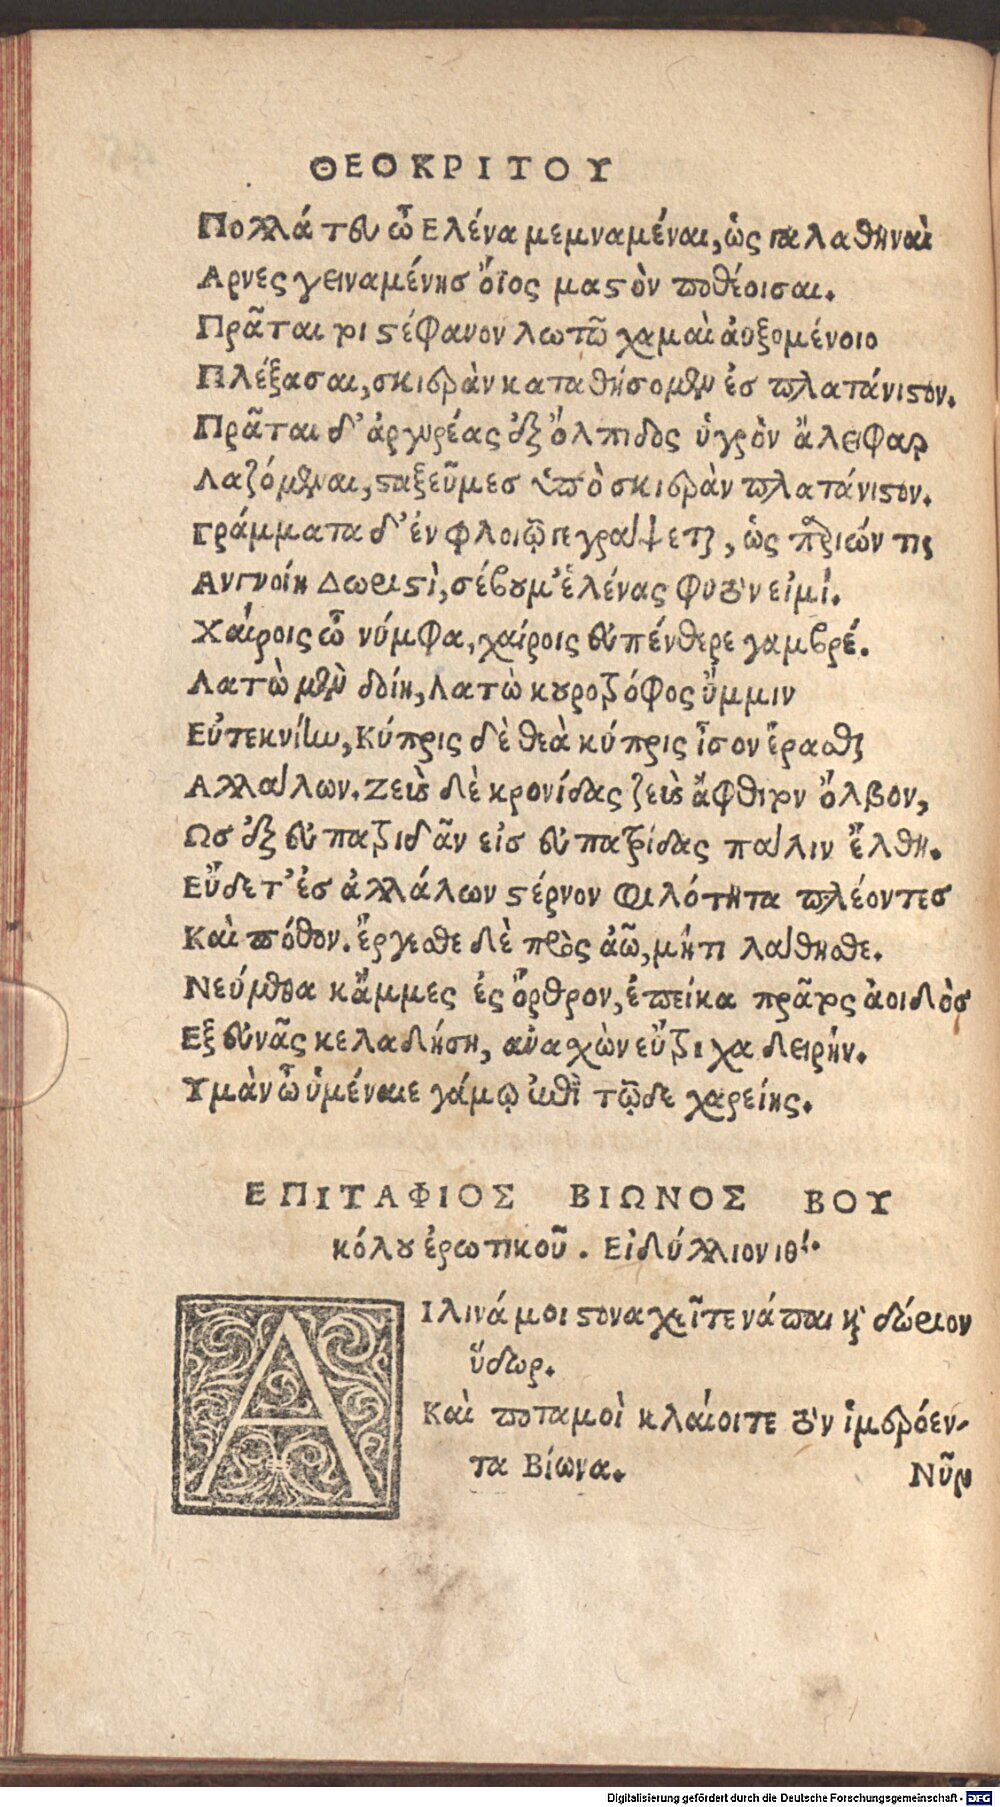 ΘΕΟΚΡΙΤΟΥ
Πολλά τευ ὦ Ελένα μεμναμέναι, ὡς γαλαθηναὶ
Αρνες γειναμένησ ὄϊος μαστὸν ποθέοισαι.
Πρᾶται τοι στέφανον λωτῶ χαμαὶ ἀυξομένοιο
Πλέξασαι, σκιερὰν καταθήσομεν ἐσ πλατάνιστον.
Πρᾶται δ' ἀργυρέας ἐξ ὄλπιδος ὑγρὸν ἄλειφαρ
Λαζόμεναι, σταξεῦμεσ ὑπὸ σκιερὰν πλατάνιστον.
Γράμματα δ' ἐν φλοιῷ γεγράψεται, ὡς παριών τις
Ανγνοίη Δωριστὶ, σέβου μ' ἑλένας φυτὸν εἰμί.
Χαίροις ὦ νύμφα, χαίροις εὐπένθερε γαμβρέ.
Λατὼ μὲν δοίη, λατὼ κουροτρόφος ὔμμιν
Εὐτεκνίην, Κύπρις δὲ θεὰ κύπρις ἶσον ἔρασθαι
Αλλάλων. Ζεὺς δὲ κρονίδας ζεὺς ἄφθιτον ὄλβον,
Ωσ ἐξ εὐπατριδᾶν εἰσ εὐπατρίδας πάλιν ἔλθη.
Εὕδετ' ἐσ ἀλλάλων στέρνον φιλότητα πνέοντεσ
Καὶ πόθον. ἔργεσθε δὲ πρὸς ἀῶ, μήτι λάθησθε.
Νεύμεθα κἄμμες ἐς ὄρθρον, ἐπείκα πρᾶτος ἀοιδὸσ
Εξ εὐνᾶς κελαδήση, ἀνασχὼν εὔτριχα δειρήν.
Υμὰν ὦ ὑμέναιε γάμῳ ἐπὶ τῷδε χαρείης.
ΕΠΙΤΑΦΙΟΣ ΒΙΩΝΟΣ ΒΟΥ
κόλου ἐρωτικοῦ. Εἰδύλλιον ιθʹ.
ΑΙλινά μοι στοναχεῖτε νάπαι καὶ δώριον
ὕδωρ.
Καὶ ποταμοὶ κλαίοιτε τὸν ἱμερόεν-
τα Βίωνα. Νῦν
Digitalisierung gefördert durch die Deutsche Forschungsgemeinschaft - DFG